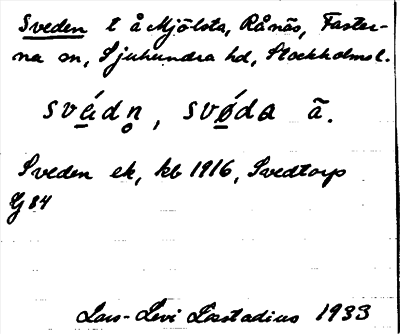 Sveden t å Mjölsta, Rånäs, Faster-
na sn, Sjuhundra hd, Stockholms l.
svédn̥, svø̀da ã.
Sveden ek, kb 1916, Svedtorp
G 84
Lars-Levi Læstadius 1933